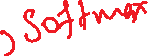 , Softmax